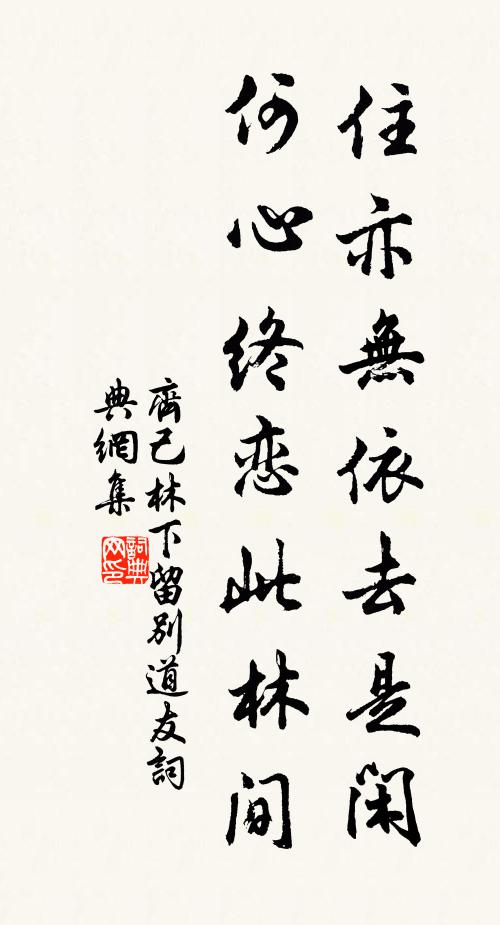 住亦無依去是閑
何心終恋此林间
齊己林下留别道友詞
典網集
詞典
网印